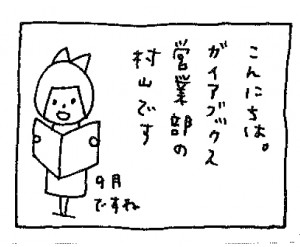 こんにちは。
ガイアブックス
営業部の
村山です
9月
ですね